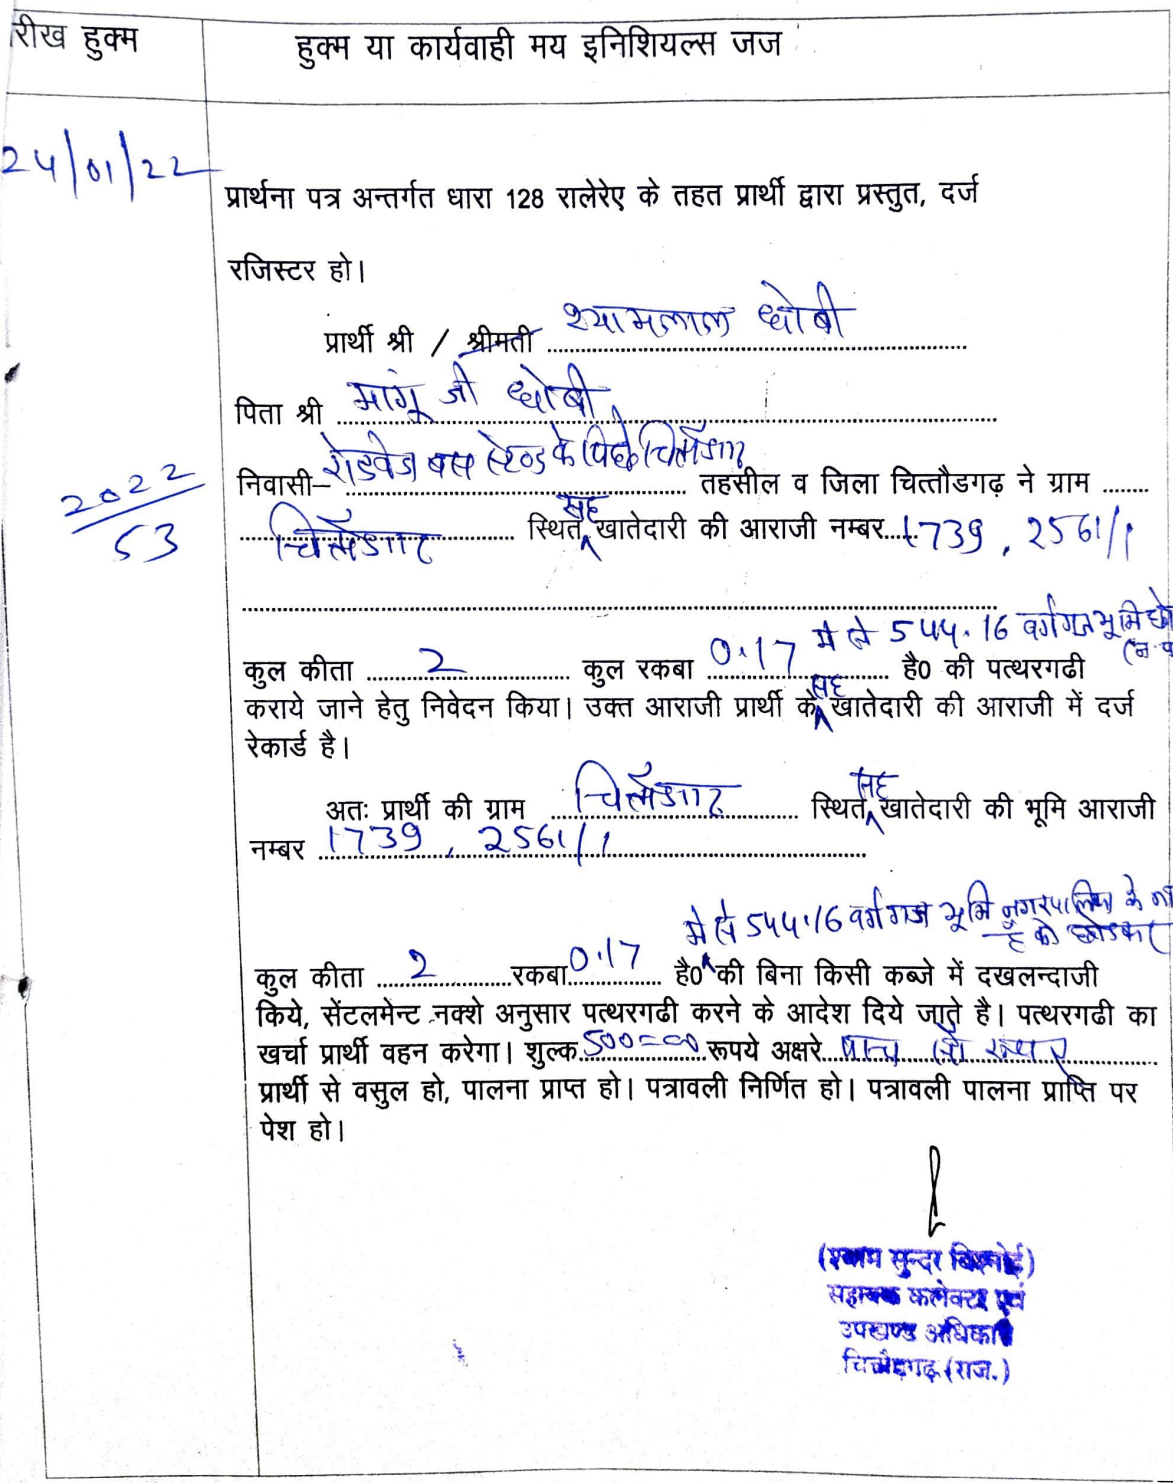 रीख हुक्म
हुक्म या कार्यवाही मय इनिशियल्स जज
24/01/22
प्रार्थना पत्र अन्तर्गत धारा 128 रालेरेए के तहत प्रार्थी द्वारा प्रस्तुत, दर्ज
रजिस्टर हो।
प्रार्थी श्री / श्रीमती श्यामलाल धोबी
पिता श्री मांगू जी धोबी
निवासी– रोडवेज बस स्टेण्ड के पिछे चित्तौडगढ तहसील व जिला चित्तौडगढ़ ने ग्राम
2022/53
चित्तौडगढ स्थित सह खातेदारी की आराजी नम्बर 1739, 2561/1
कुल कीता 2 कुल रकबा 0.17 मे से 544.16 वर्गगज भूमि है0 की पत्थरगढी
कराये जाने हेतु निवेदन किया। उक्त आराजी प्रार्थी के सह खातेदारी की आराजी में दर्ज
रेकार्ड है।
अतः प्रार्थी की ग्राम चित्तौडगढ स्थित सह खातेदारी की भूमि आराजी
नम्बर 1739, 2561/1
मे से 544.16 वर्गगज भूमि नगरपालिका के
है को छोडकर
कुल कीता 2 रकबा 0.17 है0 की बिना किसी कब्जे में दखलन्दाजी
किये, सेंटलमेन्ट नक्शे अनुसार पत्थरगढी करने के आदेश दिये जाते है। पत्थरगढी का
खर्चा प्रार्थी वहन करेगा। शुल्क 500=00 रूपये अक्षरे पान्च सो रूपए
प्रार्थी से वसुल हो, पालना प्राप्त हो। पत्रावली निर्णित हो। पत्रावली पालना प्राप्ति पर
पेश हो।
(श्याम सुन्दर बिश्नोई)
सहायक कलेक्टर एवं
उपखण्ड अधिकारी
चित्तौड़गढ़ (राज.)